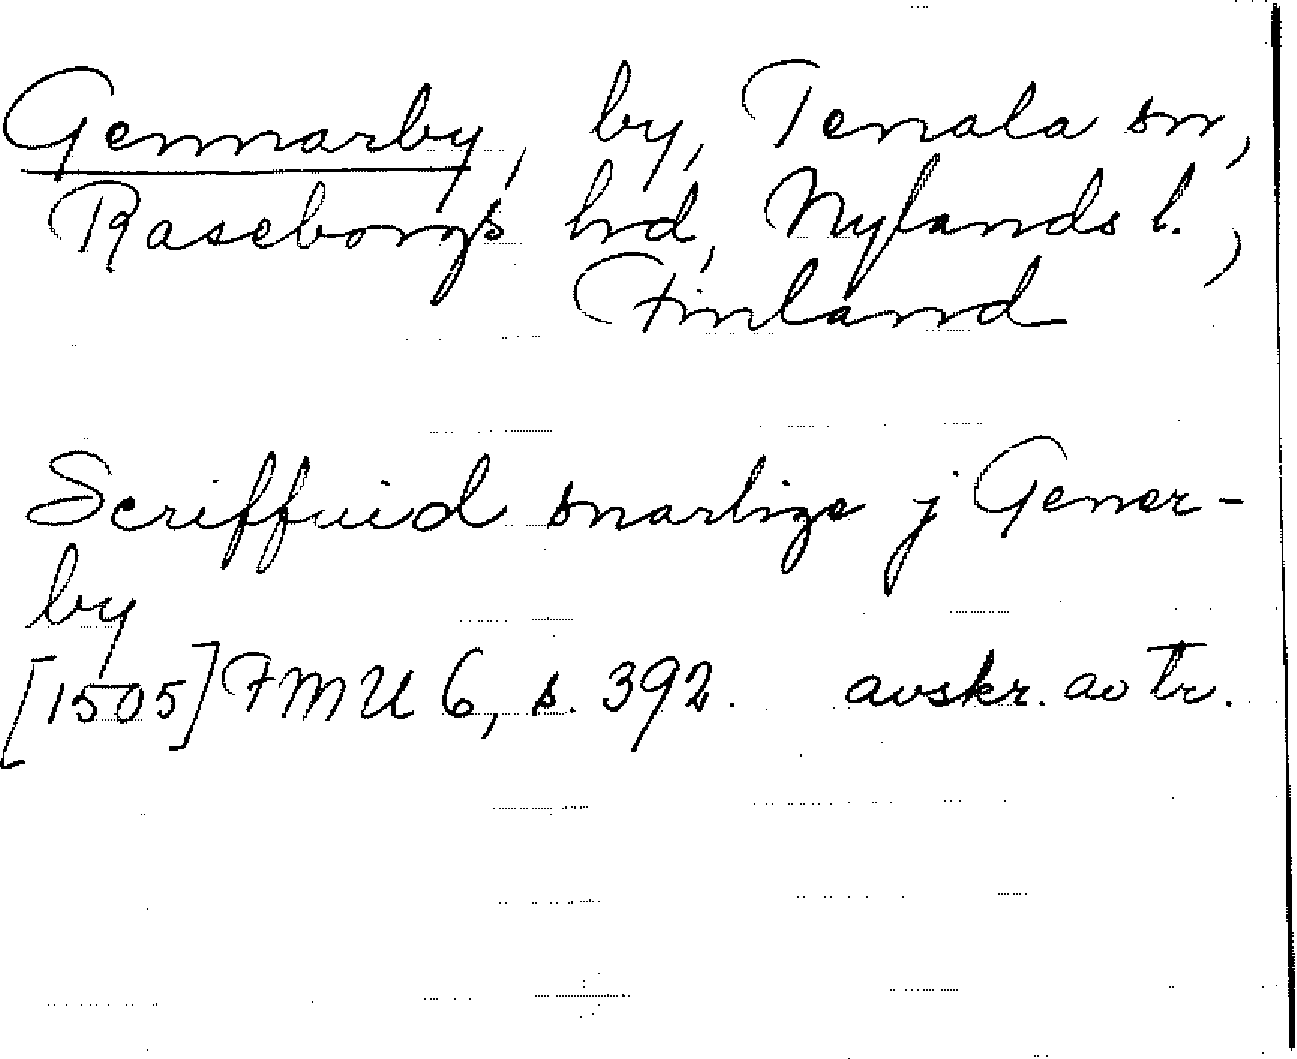 Gennarby, by, Tenala sn,
Raseborgs hd, Nylands l.,
Finland
Scriffuid snarlige j Gener-
by
[1505] FMU 6, s. 392. avskr. av tr.